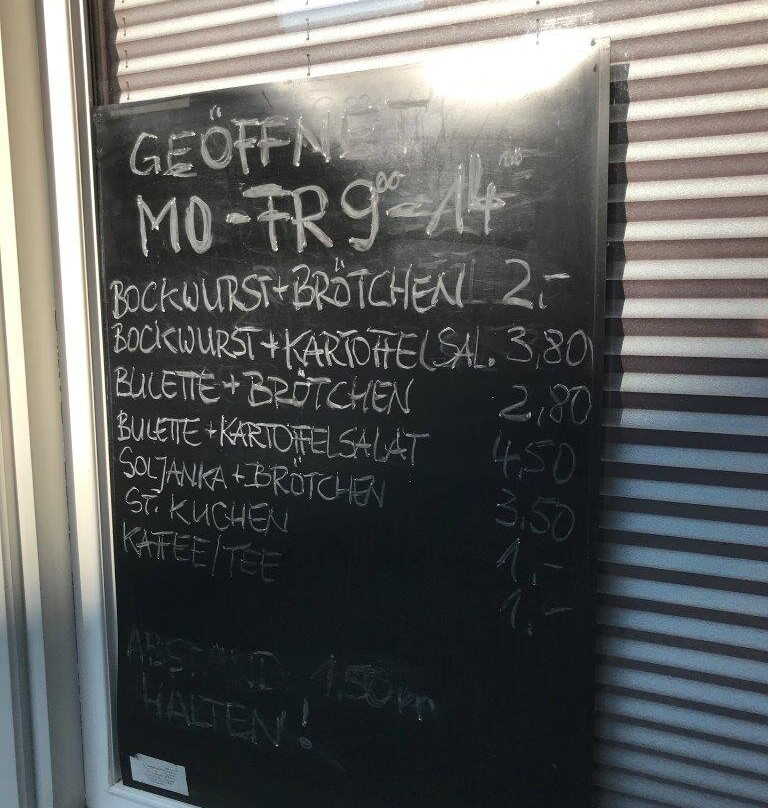 GEÖFFNET
MO-FR 9⁰⁰-14⁰⁰
BOCKWURST+BRÖTCHEN 2,-
BOCKWURST+KARTOFFELSAL. 3,80
BULETTE+BRÖTCHEN 2,80
BULETTE+KARTOFFELSALAT 4,50
SOLJANKA+BRÖTCHEN 3,50
ST. KUCHEN 1,-
KAFFEE/TEE 1,-
ABSTAND 1.50m
HALTEN!